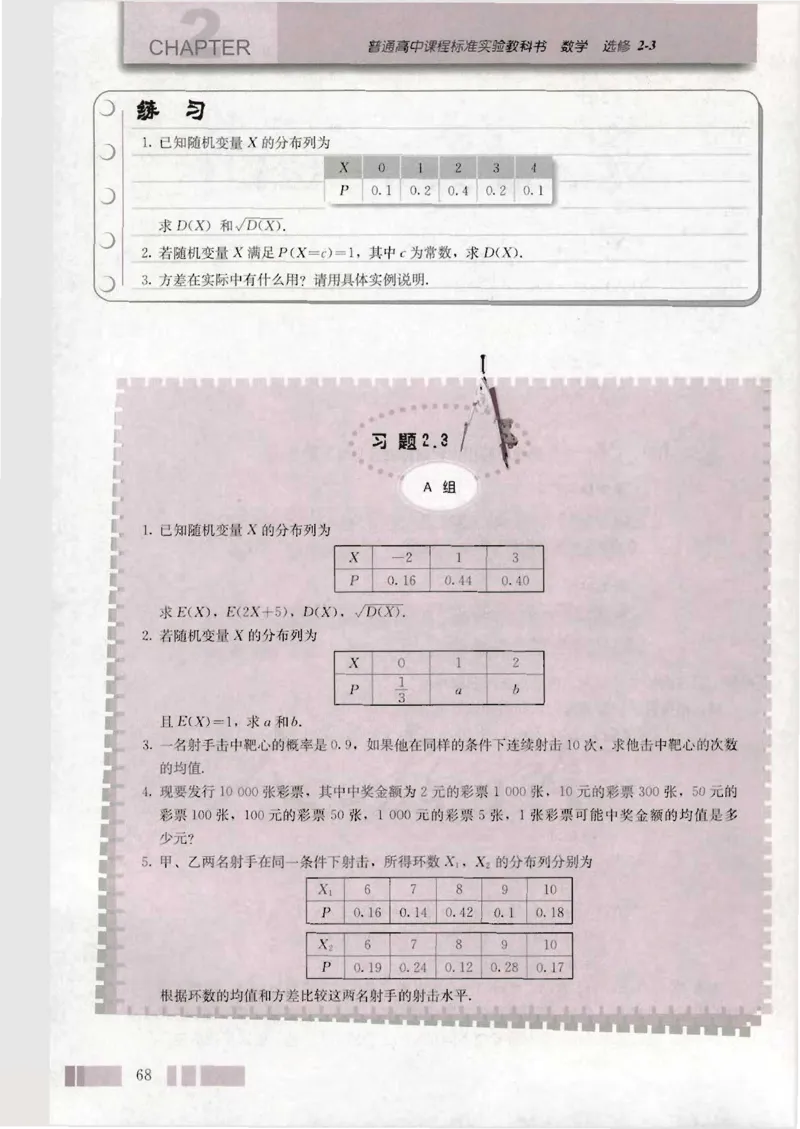 2
CHAPTER
普通高中课程标准实验教科书 数学 选修 2-3
练 习
1. 已知随机变量 X 的分布列为
X 0 1 2 3 4
P 0.1 0.2 0.4 0.2 0.1
求 D(X) 和√D(X).
2. 若随机变量 X 满足 P(X=c)=1，其中 c 为常数，求 D(X).
3. 方差在实际中有什么用？请用具体实例说明.
习 题 2.3
A 组
1. 已知随机变量 X 的分布列为
X −2 1 3
P 0.16 0.44 0.40
求 E(X)，E(2X+5)，D(X)，√D(X).
2. 若随机变量 X 的分布列为
X 0 1 2
P 1/3 a b
且 E(X)=1，求 a 和 b.
3. 一名射手击中靶心的概率是 0.9，如果他在同样的条件下连续射击 10 次，求他击中靶心的次数
的均值.
4. 现要发行 10 000 张彩票，其中中奖金额为 2 元的彩票 1 000 张，10 元的彩票 300 张，50 元的
彩票 100 张，100 元的彩票 50 张，1 000 元的彩票 5 张，1 张彩票可能中奖金额的均值是多
少元？
5. 甲、乙两名射手在同一条件下射击，所得环数 X₁，X₂ 的分布列分别为
X₁ 6 7 8 9 10
P 0.16 0.14 0.42 0.1 0.18
X₂ 6 7 8 9 10
P 0.19 0.24 0.12 0.28 0.17
根据环数的均值和方差比较这两名射手的射击水平.
68